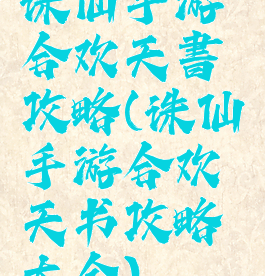 诛仙手游
合欢天書
攻略(诛仙
手游合欢
天书攻略
大全)